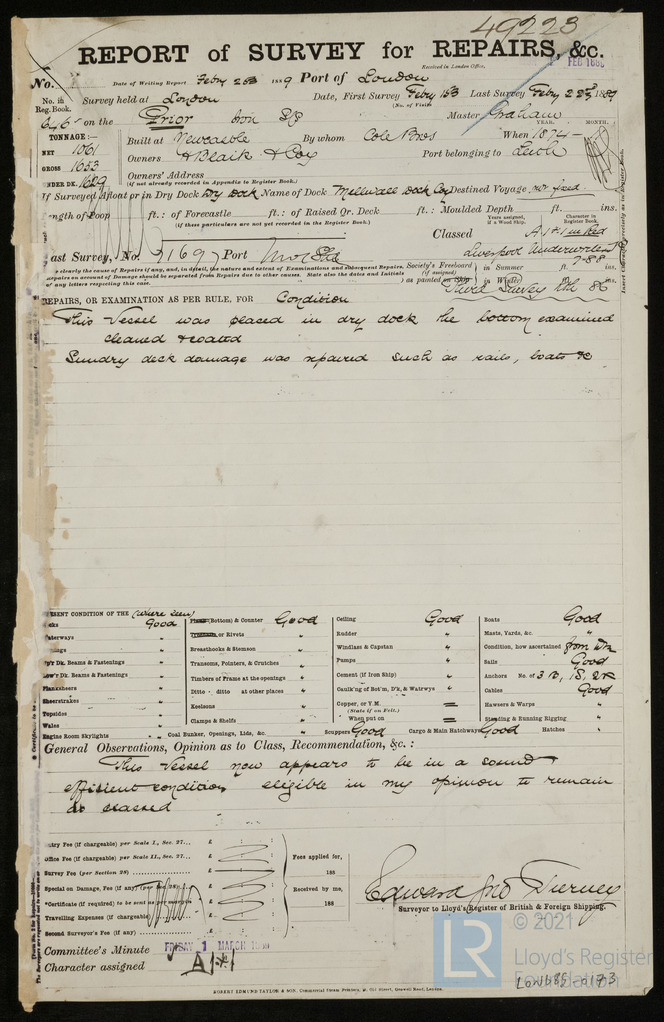 49223
REPORT of SURVEY for REPAIRS, &c.
Received in London Office,
FEB 188
No. Date of Writing Report Feby 188 9 Port of London
No. in Reg. Book. Survey held at London Date, First Survey Feby Last Survey Feby 22nd 1889
(No. of Visits
646 on the Prior Iron Master Graham
TONNAGE:— YEAR. MONTH.
NET 1061 Built at Newcastle By whom Cole Bros When 1874
GROSS 1653 Owners Blaik & Coy Port belonging to Leith
UNDER DK. 1629 Owners' Address
(if not already recorded in Appendix to Register Book.)
If Surveyed Afloat or in Dry Dock Dry Dock Name of Dock Millwall Dock Coy Destined Voyage not fixed
Length of Poop ft.: of Forecastle ft.: of Raised Qr. Deck ft.: Moulded Depth ft. ins.
(if these particulars are not yet recorded in the Register Book.)
Years assigned, if a Wood Ship. Character in Register Book.
Classed A 1 in Red
Last Survey, No. 9169 Port
Liverpool Underwriters
7-88
Society's Freeboard (if assigned) as painted on Ship in Summer ft. ins.
in Winter ft. ins.
Third Survey
REPAIRS, OR EXAMINATION AS PER RULE, FOR Condition
This Vessel was placed in dry dock the bottom examined
cleaned & coated
Sundry deck damage was repaired such as rails, boats &c
PRESENT CONDITION OF THE (where seen)
Decks Good
Waterways "
Upp'r Dk. Beams & Fastenings "
Low'r Dk. Beams & Fastenings "
Planksheers "
Sheerstrakes "
Topsides "
Wales "
Engine Room Skylights "
Plank (Bottom) & Counter Good
Treenails, or Rivets "
Breasthooks & Stemson "
Transoms, Pointers, & Crutches "
Timbers of Frame at the openings "
Ditto - ditto at other places "
Keelsons "
Clamps & Shelfs "
Coal Bunker, Openings, Lids, &c. "
Ceiling Good
Rudder "
Windlass & Capstan "
Pumps "
Cement (if Iron Ship) "
Caulk'ng of Bot'm, D'k, & Watrwys "
Copper, or Y.M.
(State if on Felt.)
When put on
Scuppers Good
Cargo & Main Hatchways Good
Boats Good
Masts, Yards, &c. "
Condition, how ascertained from Dk
Sails Good
Anchors No. of 3 B, 1S, 2K
Cables Good
Hawsers & Warps "
Standing & Running Rigging "
Hatches "
General Observations, Opinion as to Class, Recommendation, &c.:
This Vessel now appears to be in a sound &
efficient condition eligible in my opinion to remain
as classed
Entry Fee (if chargeable) per Scale I., Sec. 27... £ : :
Office Fee (if chargeable) per Scale II., Sec. 27... £ : :
Survey Fee (per Section 28) £ : :
Special on Damage, Fee (if any) (per Sec. 28) £ : :
*Certificate (if required) to be sent as per margin £ : :
Travelling Expenses (if chargeable) £ : :
Second Surveyor's Fee (if any) £ : :
Fees applied for,
188
Received by me,
188
Edward Jno Tierney
Surveyor to Lloyd's Register of British & Foreign Shipping.
Committee's Minute FRIDAY 1 MARCH
Character assigned A 1
ROBERT EDMUND TAYLOR & SON,
© 2021
LR
Lloyd's Register
Foundation
LON885-0173